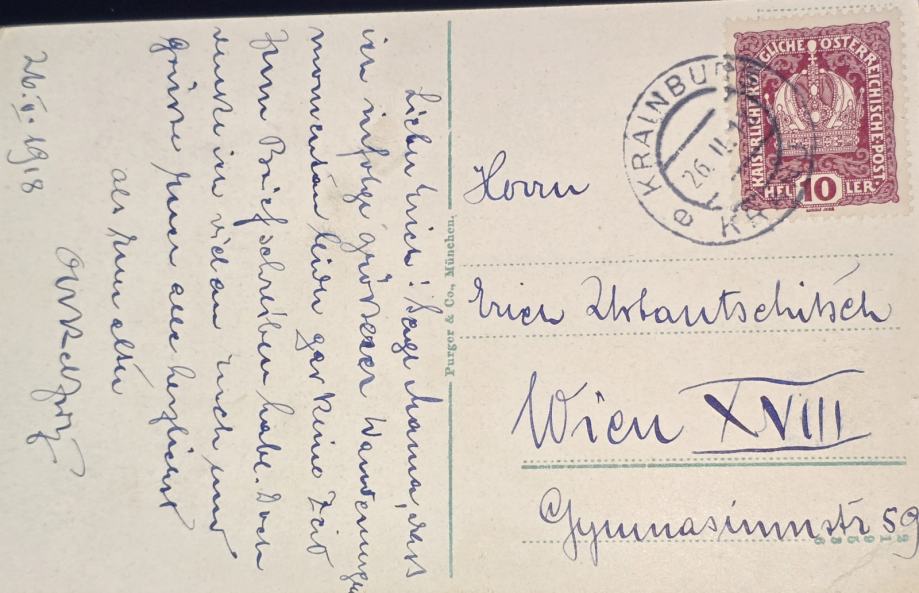 26.V.1918
Lieber Erich! Sage Mama, dass
ich infolge grösserer Wanderungen
momentan leider gar keine Zeit
zum Briefschreiben habe. Doch
denke ich viel an Euch und
grüsse Euch alle herzlichst
als Euer alter
Herrn
Erich Urbantschitsch
Wien XVIII
Gymnasiumstr 59
Purger & Co., München.
KAISERLICHE KÖNIGLICHE ÖSTERREICHISCHE POST
HELLER 10
KRAINBURG
26.
e